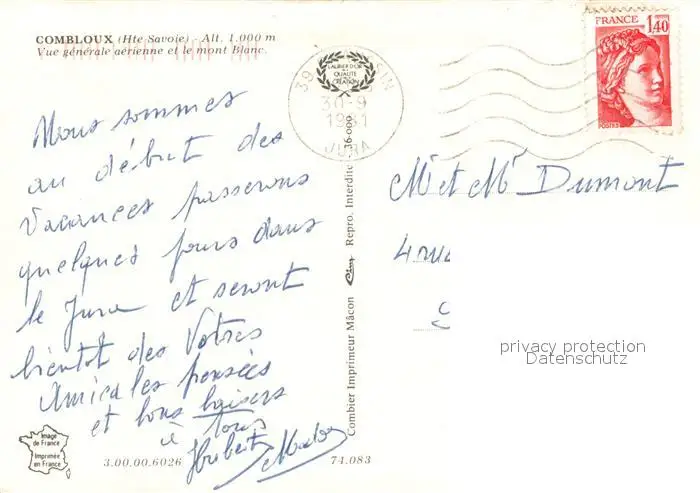 COMBLOUX (Hte Savoie) - Alt. 1.000 m
Vue générale aérienne et le mont Blanc.
Nous sommes
au début des
Vacances passerons
quelques jours dans
le Jura et seront
bientot des Votres
Amicales pensées
et bons baisers
à tous
Hubert
3.00.00.6026
74.083
Image
de France
Imprimée
en France
Combier Imprimeur Mâcon
Cim
Repro. Interdite
36-000
39
LAURIER D'OR
QUALITÉ
CRÉATION
30-9
1981
JURA
FRANCE
1,40
POSTES
Mr et Me Dumont
4 rue
privacy protection
Datenschutz